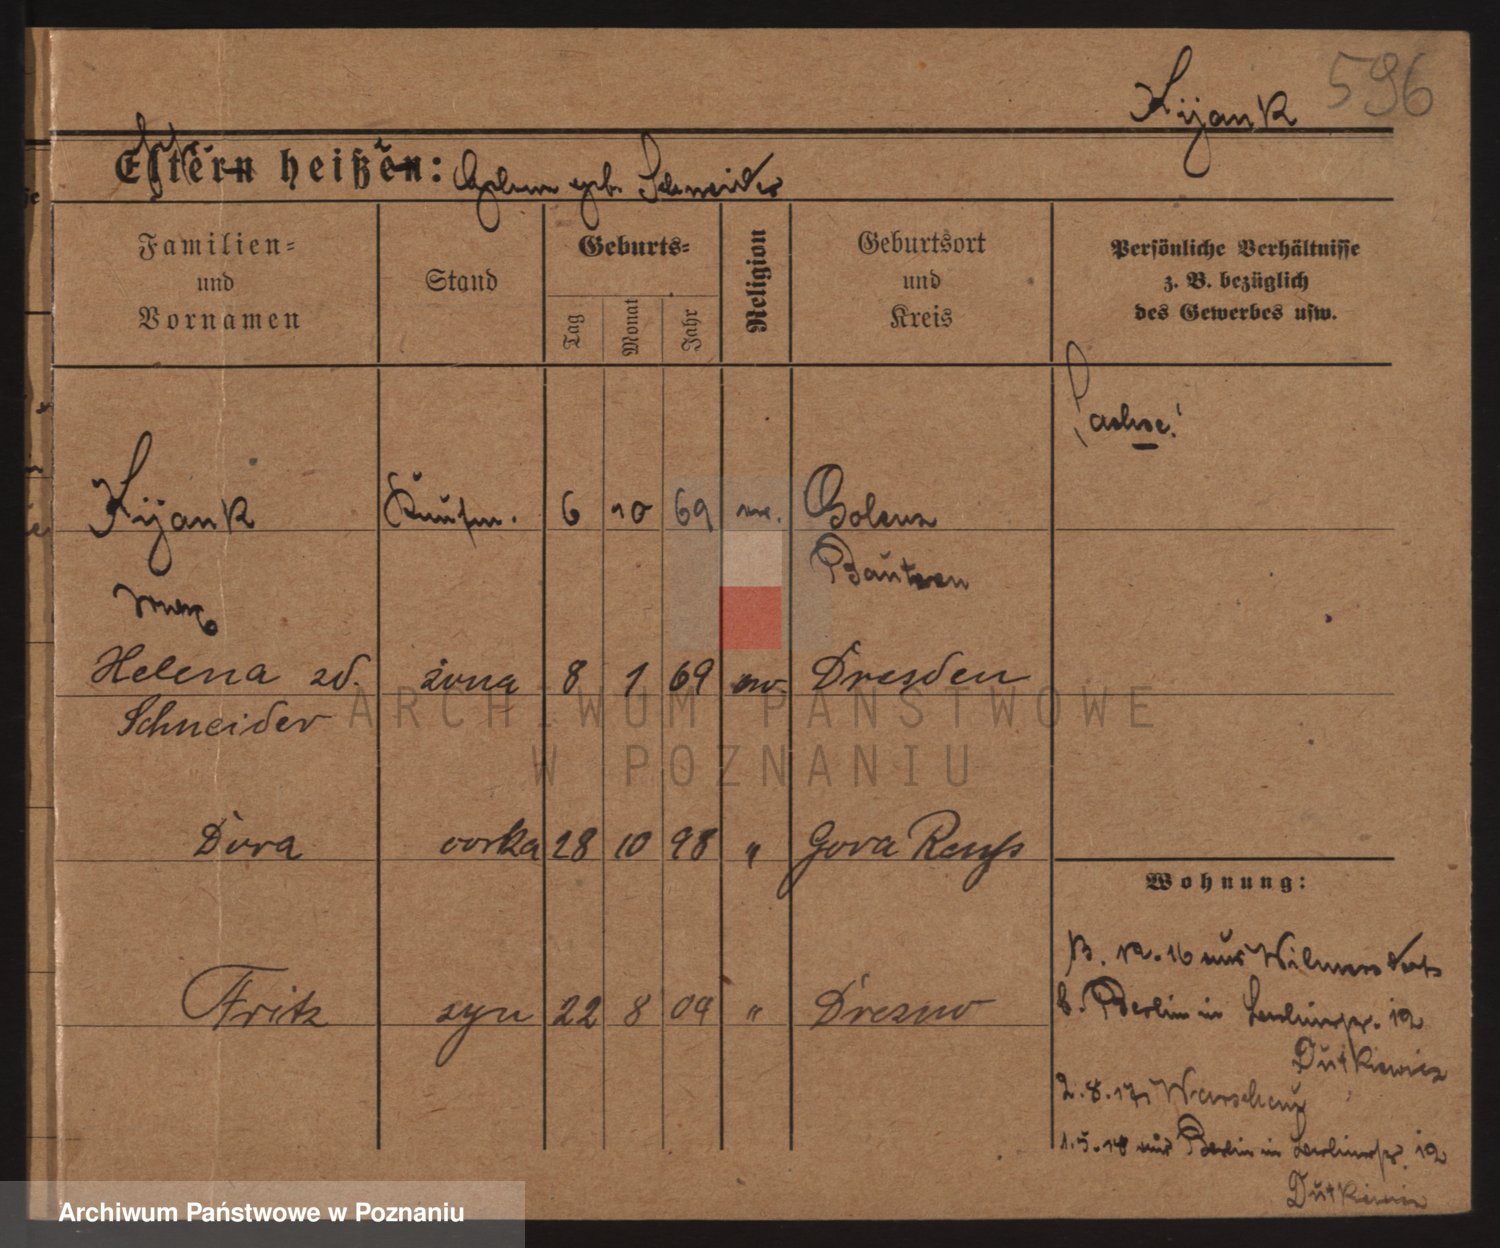 Kijank 596
Eltern heißen: geb. Schneider
Familien-
und
Vornamen
Stand
Geburts-
Tag
Monat
Jahr
Religion
Geburtsort
und
Kreis
Persönliche Verhältnisse
z. B. bezüglich
des Gewerbes usw.
Sachse!
Kijank Kaufm. 6 10 69 Golenz
Bautzen
Max
Helena zd. żona 8 1 69 ew. Dresden
Schneider
Dora córka 28 10 98 " Gera Reuß
Wohnung:
Fritz syn 22 8 09 " Drezno
16 aus Wilmersdorf
b. Berlin in 12
Dutkiewicz
2.8.17 Warschau
1.5.18 aus Berlin in 12
Dutkiewicz
ARCHIWUM PAŃSTWOWE
W POZNANIU
Archiwum Państwowe w Poznaniu